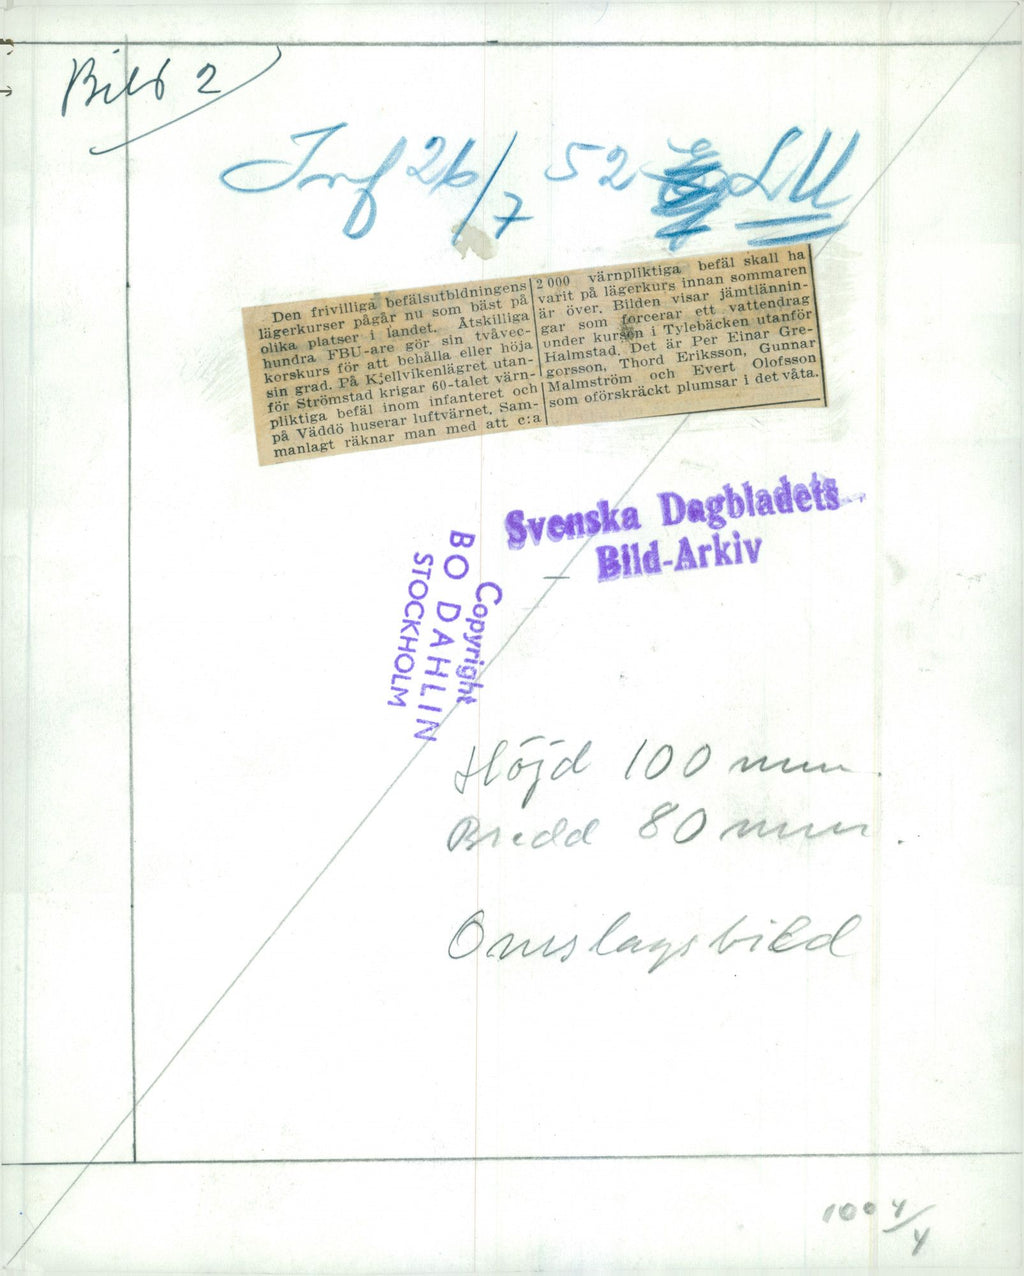 Bild 2
Inf 26/7 52 LU
Den frivilliga befälsutbldningens
lägerkurser pågår nu som bäst på
olika platser i landet. Åtskilliga
hundra FBU-are gör sin tvåvec-
korskurs för att behålla eller höja
sin grad. På Kjellvikenlägret utan-
för Strömstad krigar 60-talet värn-
pliktiga befäl inom infanteret och
på Väddö huserar luftvärnet. Sam-
manlagt räknar man med att c:a
2 000 värnpliktiga befäl skall ha
varit på lägerkurs innan sommaren
är över. Bilden visar jämtlännin-
gar som forcerar ett vattendrag
under kursen i Tylebäcken utanför
Halmstad. Det är Per Einar Gre-
gorsson, Thord Eriksson, Gunnar
Malmström och Evert Olofsson
som oförskräckt plumsar i det våta.
Svenska Dagbladets
Bild-Arkiv
Copyright
BO DAHLIN
STOCKHOLM
Höjd 100 mm.
Bredd 80 mm.
Omslagsbild
100 4/4